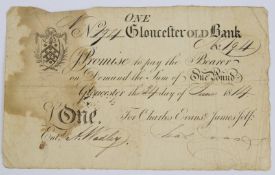 ONE
No. 294 Gloucester OLD Bank
No. 194
Promise to pay the Bearer
on Demand the Sum of One Pound
Gloucester the 24 day of June 1814
For Charles Evans James Jelf
One.
Ent.